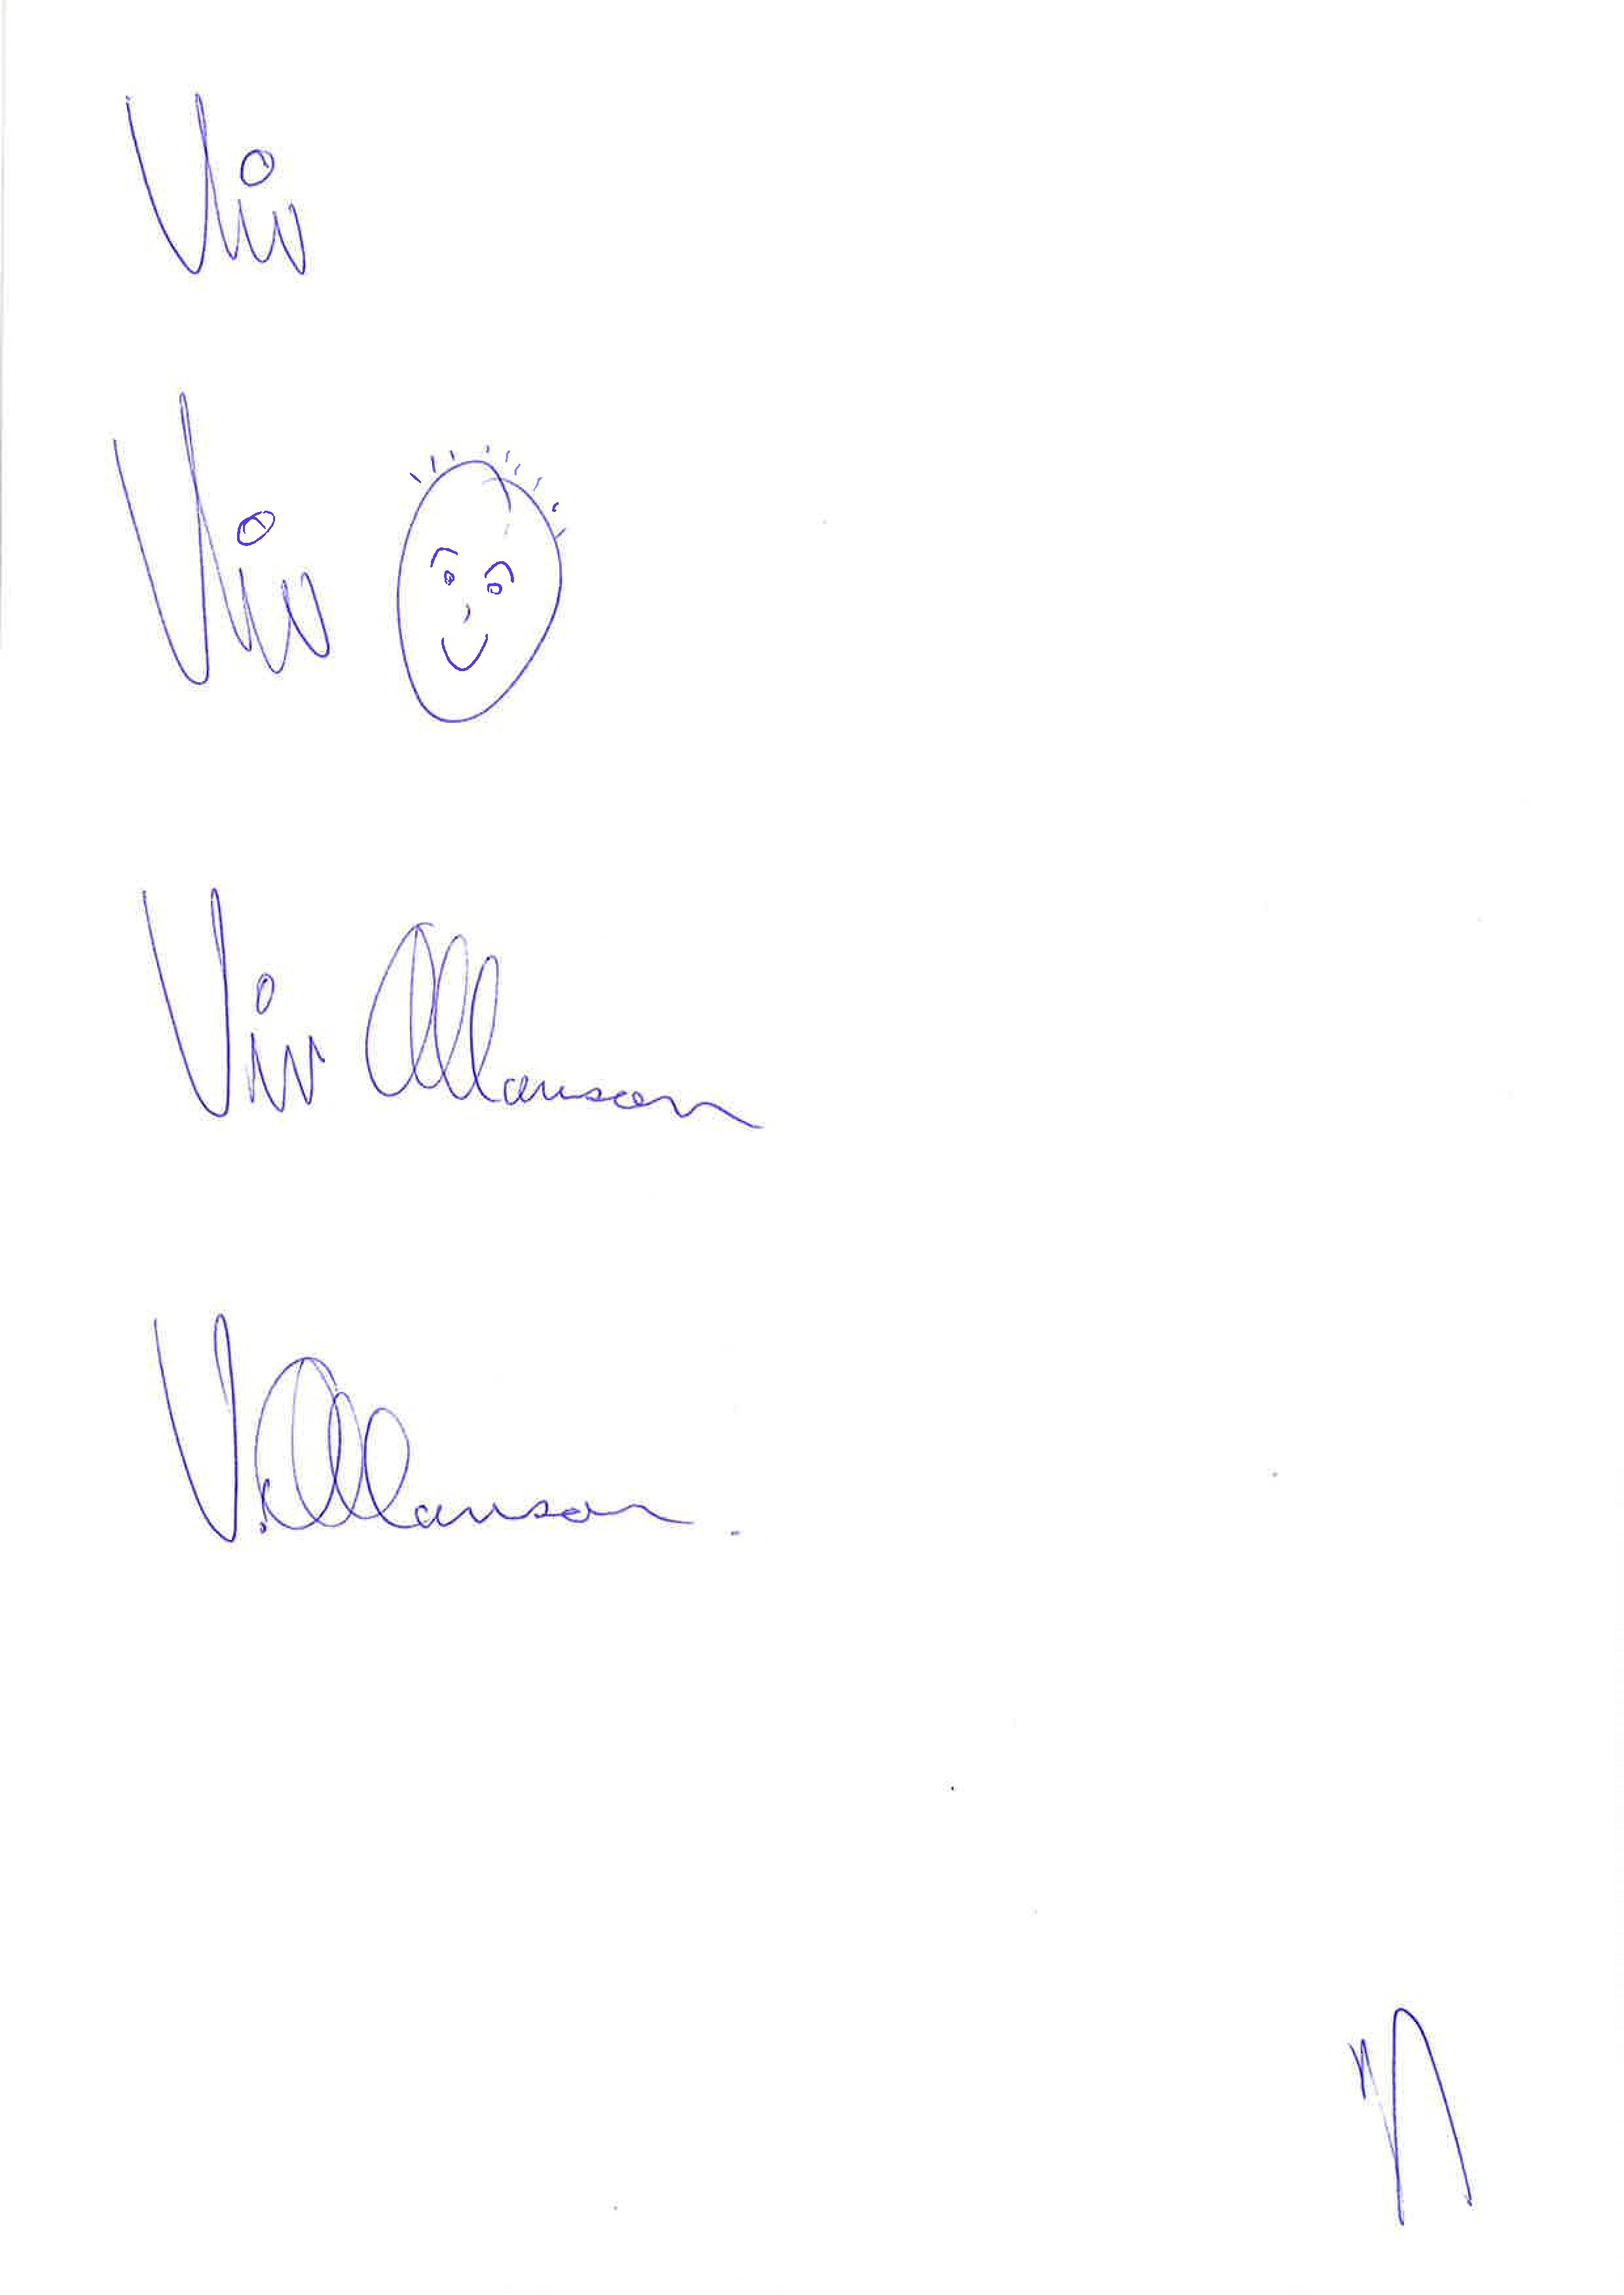 Viv
Viv
Viv Allanson
V. Allanson